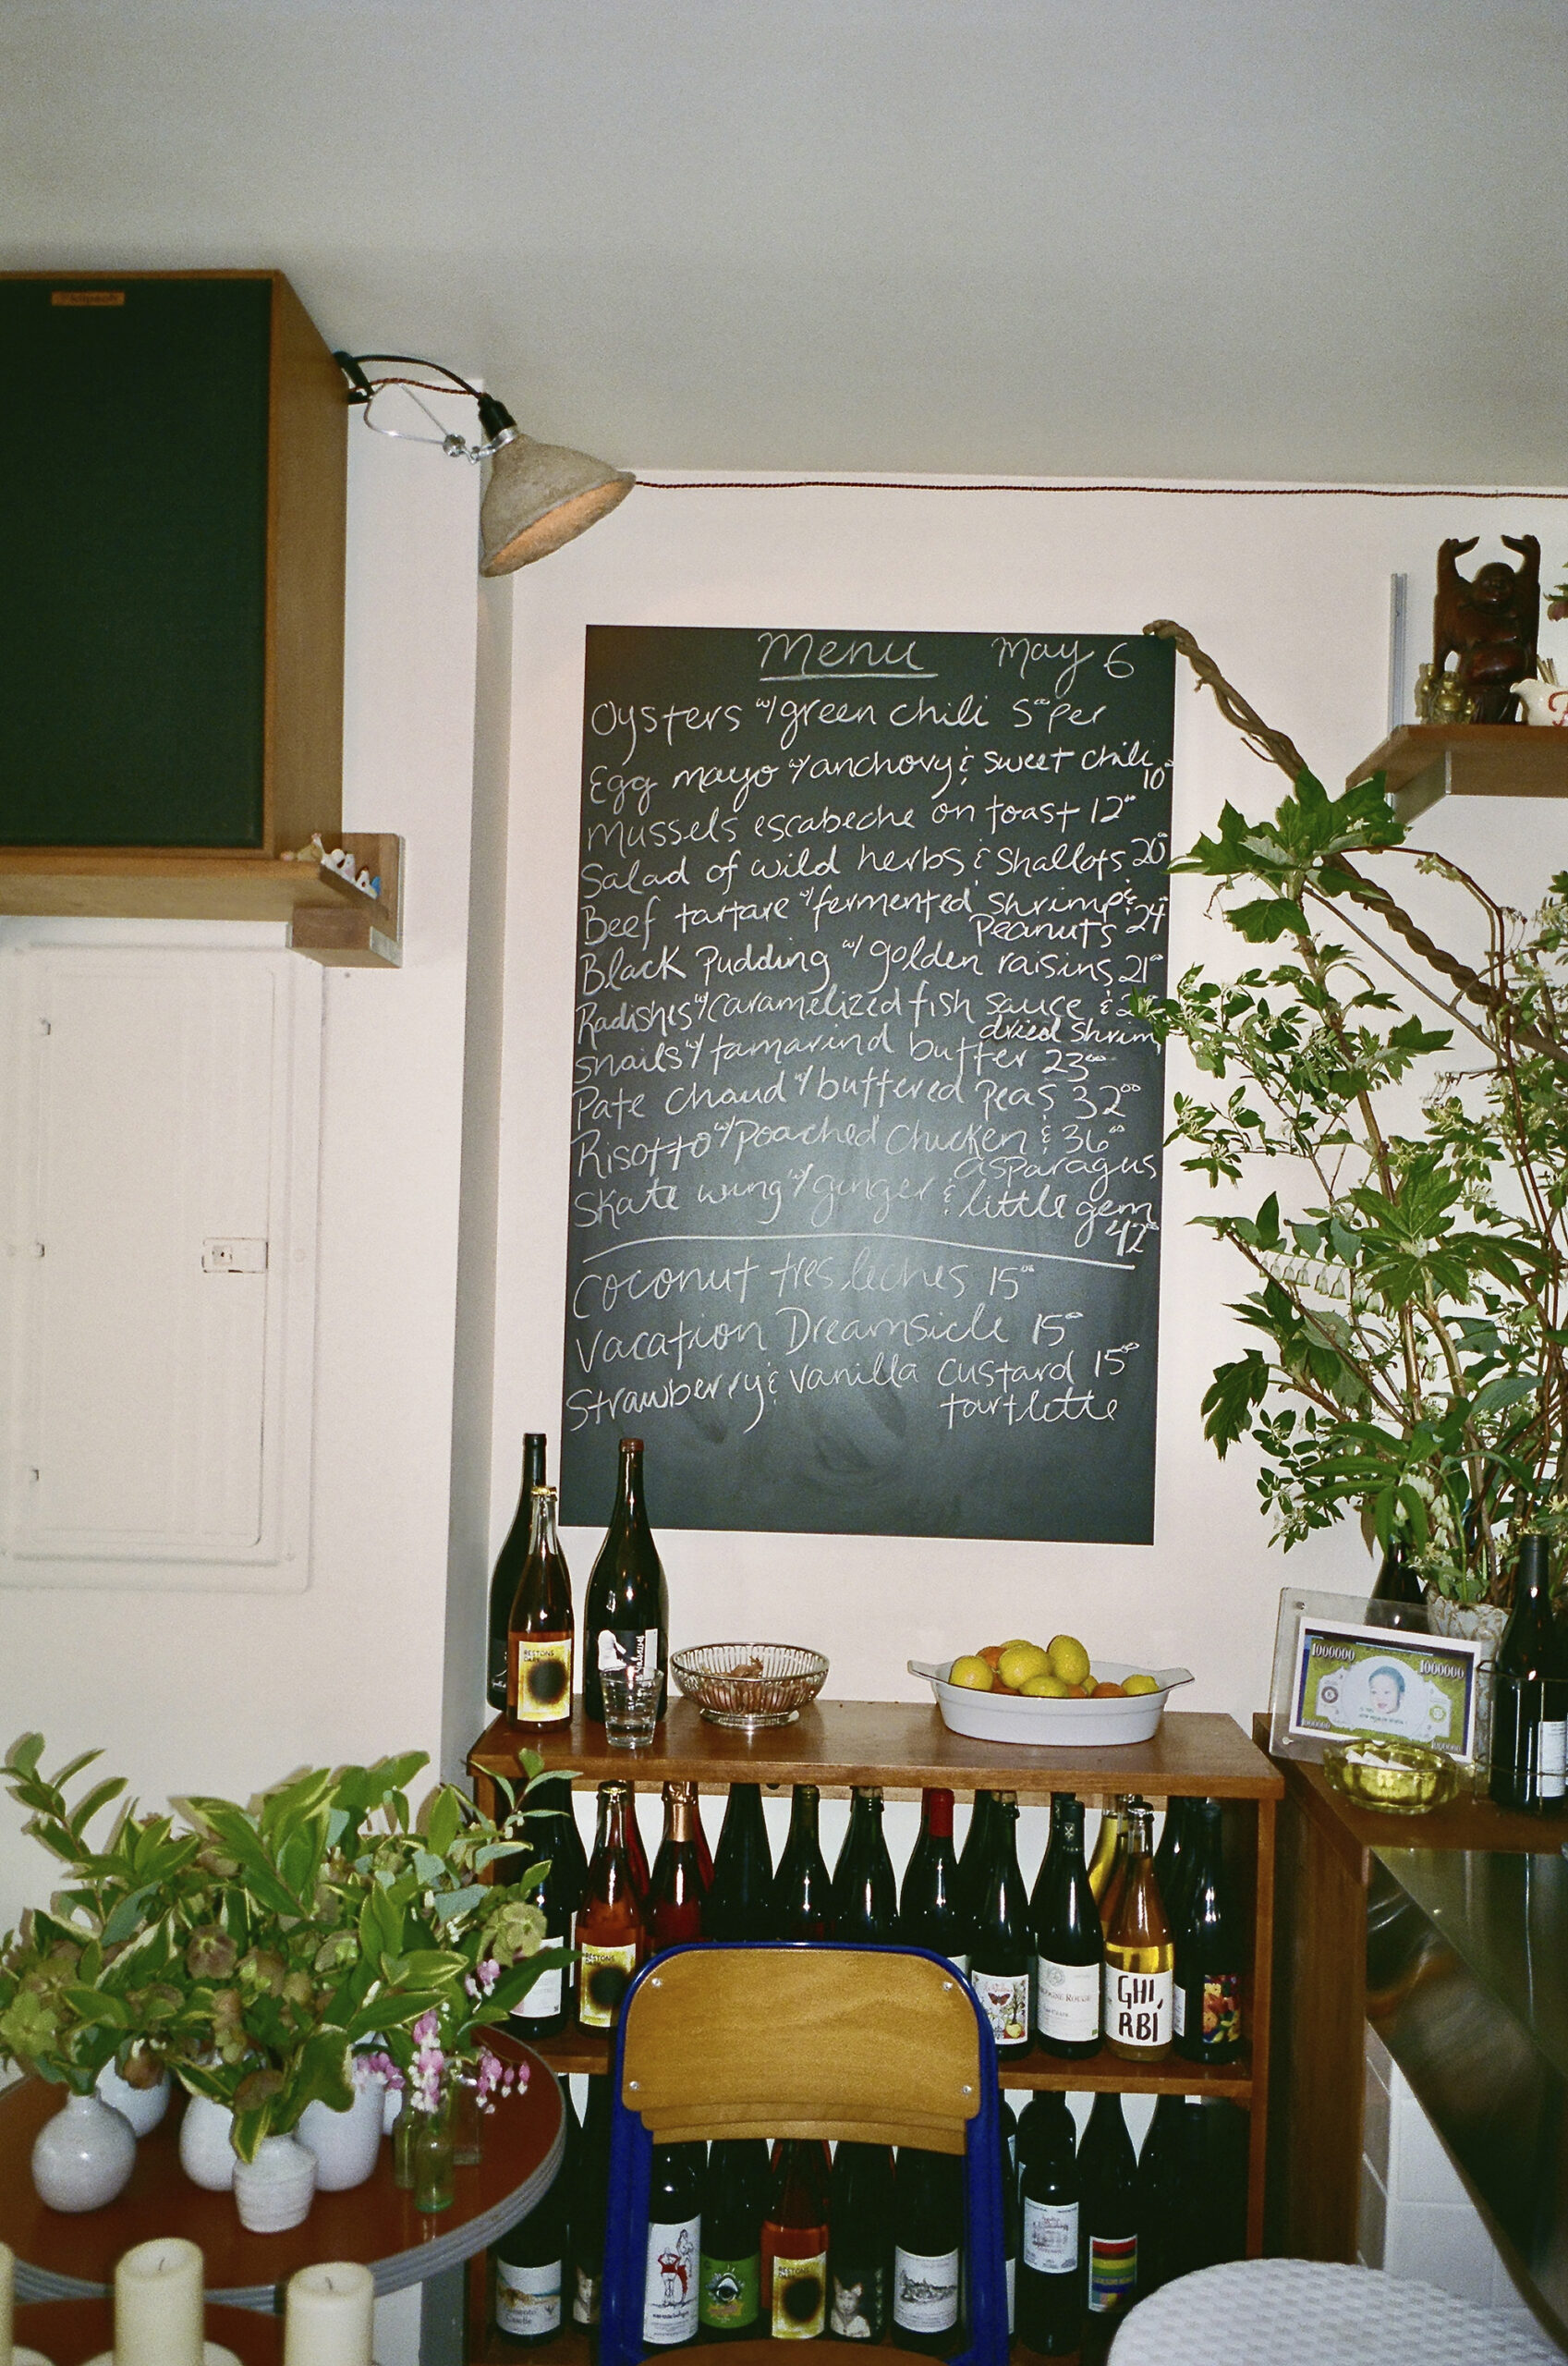 Klipsch
Menu May 6
Oysters w/ green chili 5⁰⁰ per
Egg mayo w/ anchovy & sweet chili
10⁰⁰
Mussels escabeche on toast 12⁰⁰
Salad of wild herbs & shallots 20⁰⁰
Beef tartare w/ fermented shrimp &
Peanuts 24⁰⁰
Black Pudding w/ golden raisins 21⁰⁰
Radishes w/ caramelized fish sauce &
dried shrim
snails w/ tamarind butter 23⁰⁰
Pate chaud w/ buttered peas 32⁰⁰
Risotto w/ poached chicken & 36⁰⁰
asparagus
Skate wing w/ ginger & little gem
42⁰⁰
Coconut tres leches 15⁰⁰
Vacation Dreamsicle 15⁰⁰
Strawberry & vanilla custard 15⁰⁰
tartlette
1000000 1000000
1000000 1000000
GHI,
RBI